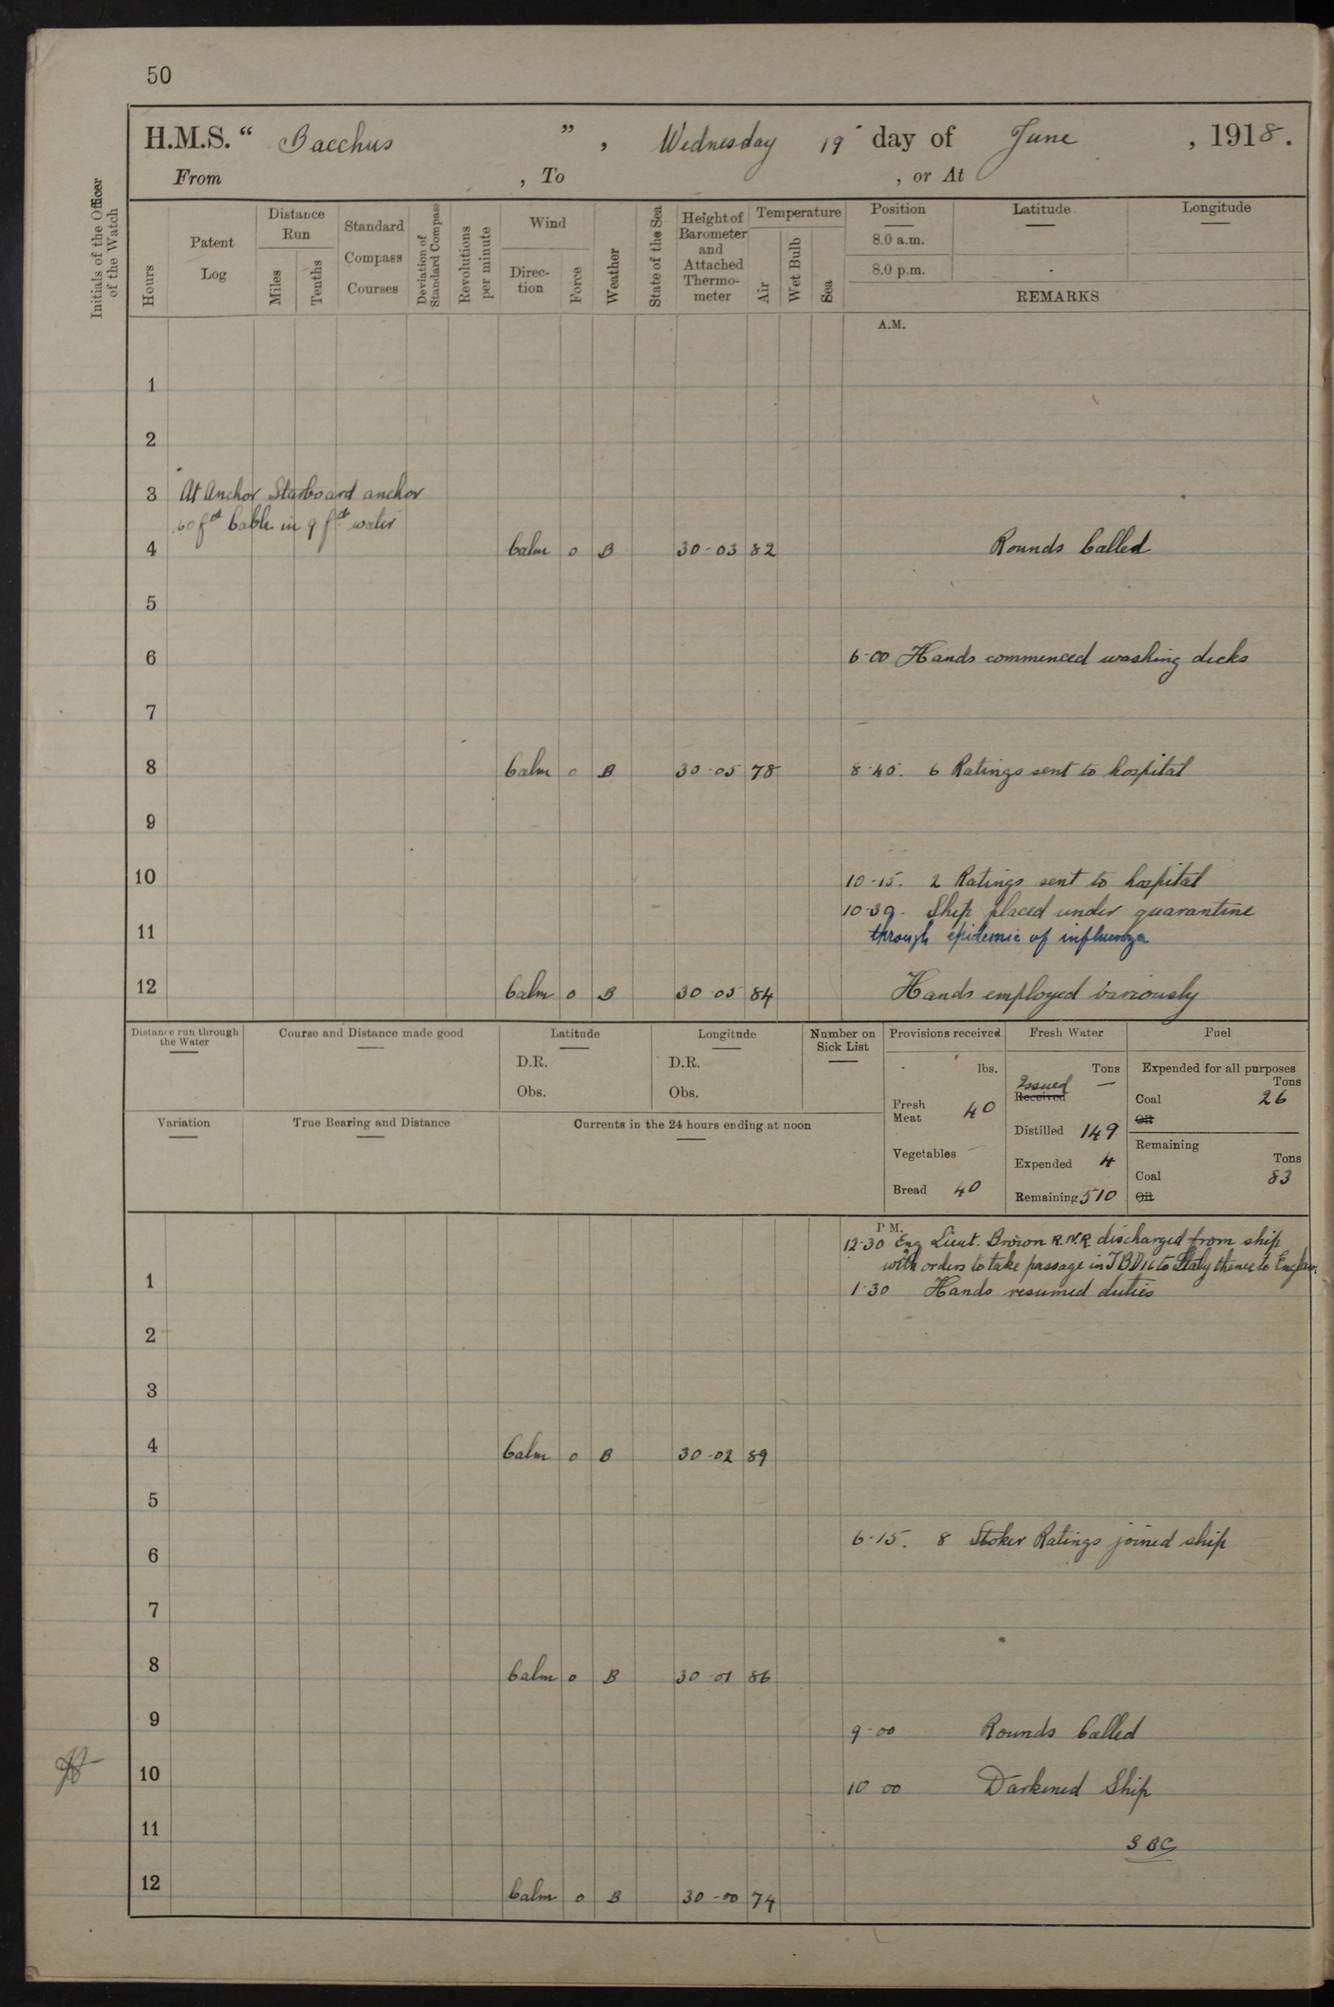 50
H.M.S. “ Bacchus ” , Wednesday 19 day of June , 1918.
From , To , or At
Initials of the Officer of the Watch
Hours
Patent Log
Distance Run
Miles
Tenths
Standard Compass Courses
Deviation of Standard Compass
Revolutions per minute
Wind
Direction
Force
Weather
State of the Sea
Height of Barometer and Attached Thermometer
Temperature
Air
Wet Bulb
Sea
Position Latitude Longitude
8.0 a.m.
8.0 p.m.
REMARKS
A.M.
1
2
3 At Anchor Starboard anchor
60 fms Cable in 9 fms water
4 Calm 0 B 30-03 82 Rounds Called
5
6 6-00 Hands commenced washing decks
7
8 Calm 0 B 30-05 78 8-40. 6 Ratings sent to hospital
9
10 10-15. 2 Ratings sent to hospital
10-30. Ship placed under quarantine
11 through epidemic of influenza
12 Calm 0 B 30-05 84 Hands employed variously
Distance run through the Water
Course and Distance made good
Latitude
D.R.
Obs.
Longitude
D.R.
Obs.
Number on Sick List
Provisions received
lbs.
Fresh Meat 40
Vegetables —
Bread 40
Fresh Water
Tons
Issued —
Received
Distilled 149
Expended 4
Remaining 510
Fuel
Expended for all purposes
Tons
Coal 26
Oil
Remaining
Tons
Coal 83
Oil
Variation
True Bearing and Distance
Currents in the 24 hours ending at noon
P.M.
12-30 Eng Lieut. Brown R.N.R. discharged from ship
with orders to take passage in T.B.D. to Italy thence to
1
1-30 Hands resumed duties
2
3
4 Calm 0 B 30-02 89
5
6-15. 8 Stoker Ratings joined ship
6
7
8 Calm 0 B 30-01 86
9 9-00 Rounds Called
10 10 00 Darkened Ship
11 SBC
12 Calm 0 B 30-00 74